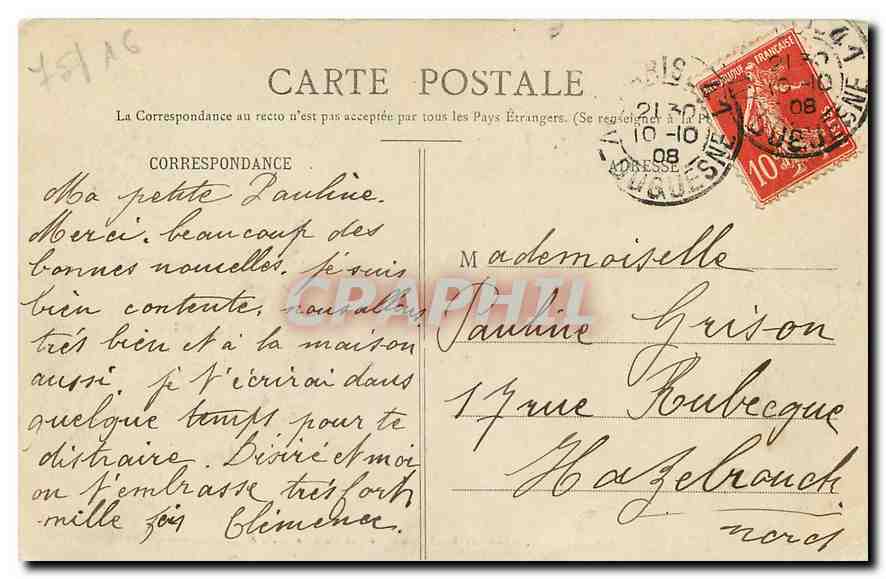 75/16
CARTE POSTALE
La Correspondance au recto n'est pas acceptée par tous les Pays Étrangers. (Se renseigner à la P
CORRESPONDANCE
ADRESSE
Ma petite Pauline.
Merci. beaucoup des
bonnes nouvelles. je suis
bien contente. nous allons
très bien et à la maison
aussi. je t'écrirai dans
quelque temps pour te
distraire. Désiré et moi
on t'embrasse très fort
mille fois Clémence.
Mademoiselle
Pauline Grison
17 rue Rubecque
Hazebrouck
Nord
PARIS
21 30
10-10
08
DUQUESNE
21 30
10-10
08
DUQUESNE
RÉPUBLIQUE FRANÇAISE
10
POSTES
CPAPHIL